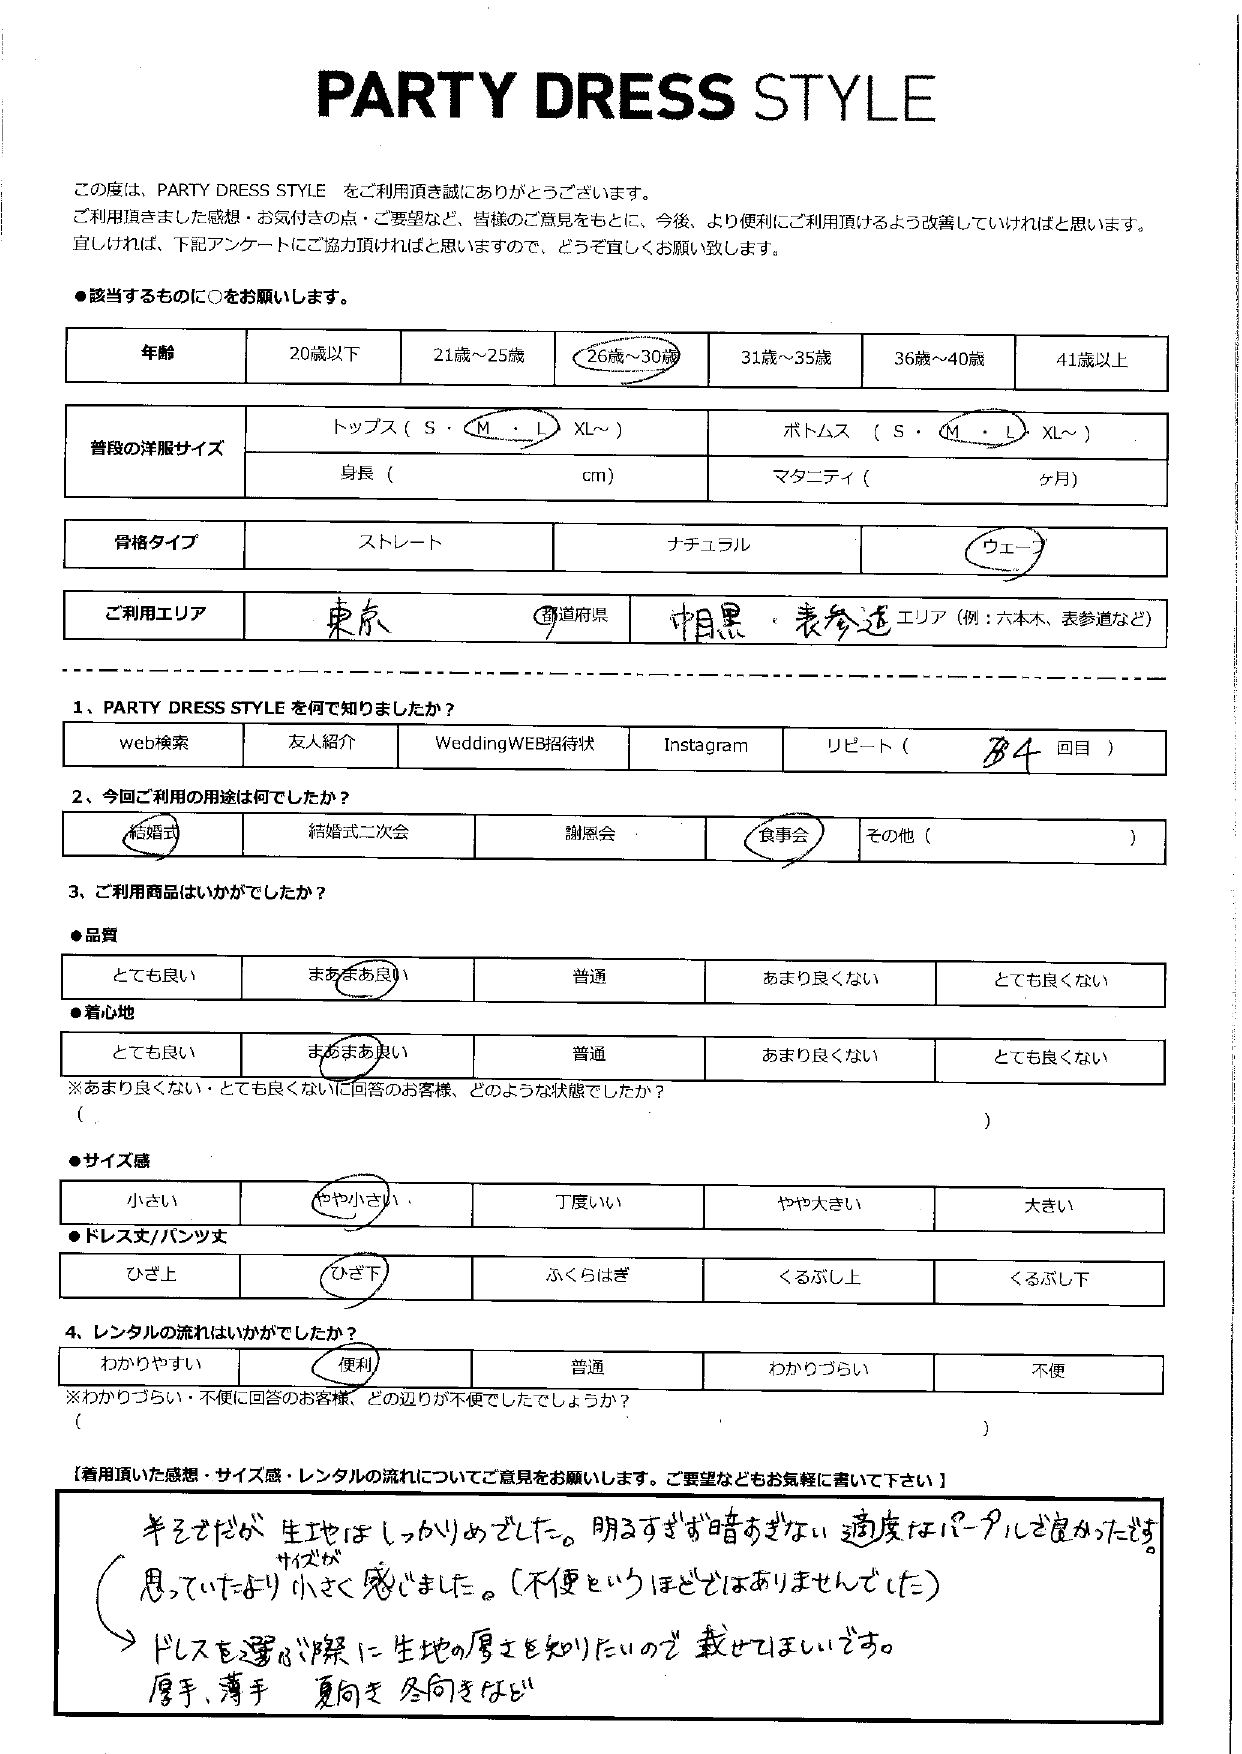 PARTY DRESS STYLE
この度は、PARTY DRESS STYLE をご利用頂き誠にありがとうございます。
ご利用頂きました感想・お気付きの点・ご要望など、皆様のご意見をもとに、今後、より便利にご利用頂けるよう改善していければと思います。
宜しければ、下記アンケートにご協力頂ければと思いますので、どうぞ宜しくお願い致します。
●該当するものに○をお願いします。
年齢 20歳以下 21歳～25歳 26歳～30歳 31歳～35歳 36歳～40歳 41歳以上
普段の洋服サイズ トップス ( S ・ M ・ L ・ XL～ ) ボトムス ( S ・ M ・ L ・ XL～ )
身長 ( cm) マタニティ ( ヶ月)
骨格タイプ ストレート ナチュラル ウェーブ
ご利用エリア 東京 都道府県 中目黒 ・ 表参道 エリア（例：六本木、表参道など）
1、PARTY DRESS STYLE を何で知りましたか？
web検索 友人紹介 WeddingWEB招待状 Instagram リピート ( 4 回目 )
2、今回ご利用の用途は何でしたか？
結婚式 結婚式二次会 謝恩会 食事会 その他 ( )
3、ご利用商品はいかがでしたか？
●品質
とても良い まあまあ良い 普通 あまり良くない とても良くない
●着心地
とても良い まあまあ良い 普通 あまり良くない とても良くない
※あまり良くない・とても良くないに回答のお客様、どのような状態でしたか？
( )
●サイズ感
小さい やや小さい 丁度いい やや大きい 大きい
●ドレス丈/パンツ丈
ひざ上 ひざ下 ふくらはぎ くるぶし上 くるぶし下
4、レンタルの流れはいかがでしたか？
わかりやすい 便利 普通 わかりづらい 不便
※わかりづらい・不便に回答のお客様、どの辺りが不便でしたでしょうか？
( )
【着用頂いた感想・サイズ感・レンタルの流れについてご意見をお願いします。ご要望などもお気軽に書いて下さい 】
半そでだが 生地はしっかりめでした。明るすぎず暗すぎない 適度なパープルで良かったです。
サイズが
思っていたより 小さく 感じました。(不便というほどではありませんでした)
ドレスを選ぶ際に 生地の厚さを知りたいので 載せてほしいです。
厚手、薄手 夏向き 冬向きなど